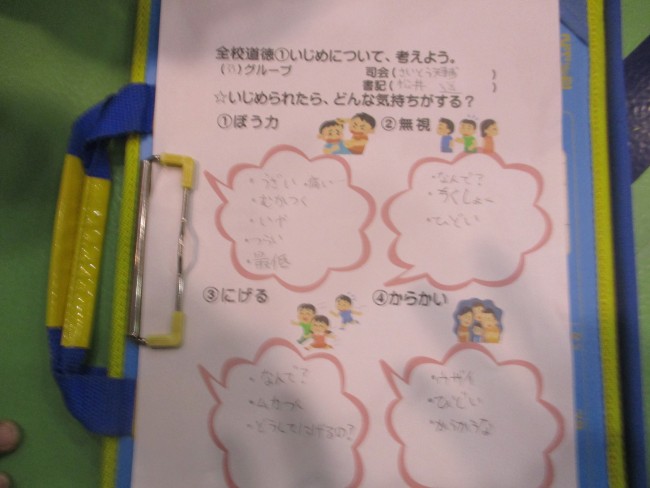 全校道徳①いじめについて、考えよう。
グループ 司会(さいとう )
書記(松井 )
☆いじめられたら、どんな気持ちがする?
①ぼう力 ②無視
・うざい ・痛い
・むかつく
・いや
・つらい
・最低
・なんで?
・ちくしょー
・ひどい
③にげる ④からかい
・なんで?
・ムカつく
・どうしてにげるの?
・ウザイ
・ひどい
・からかうな